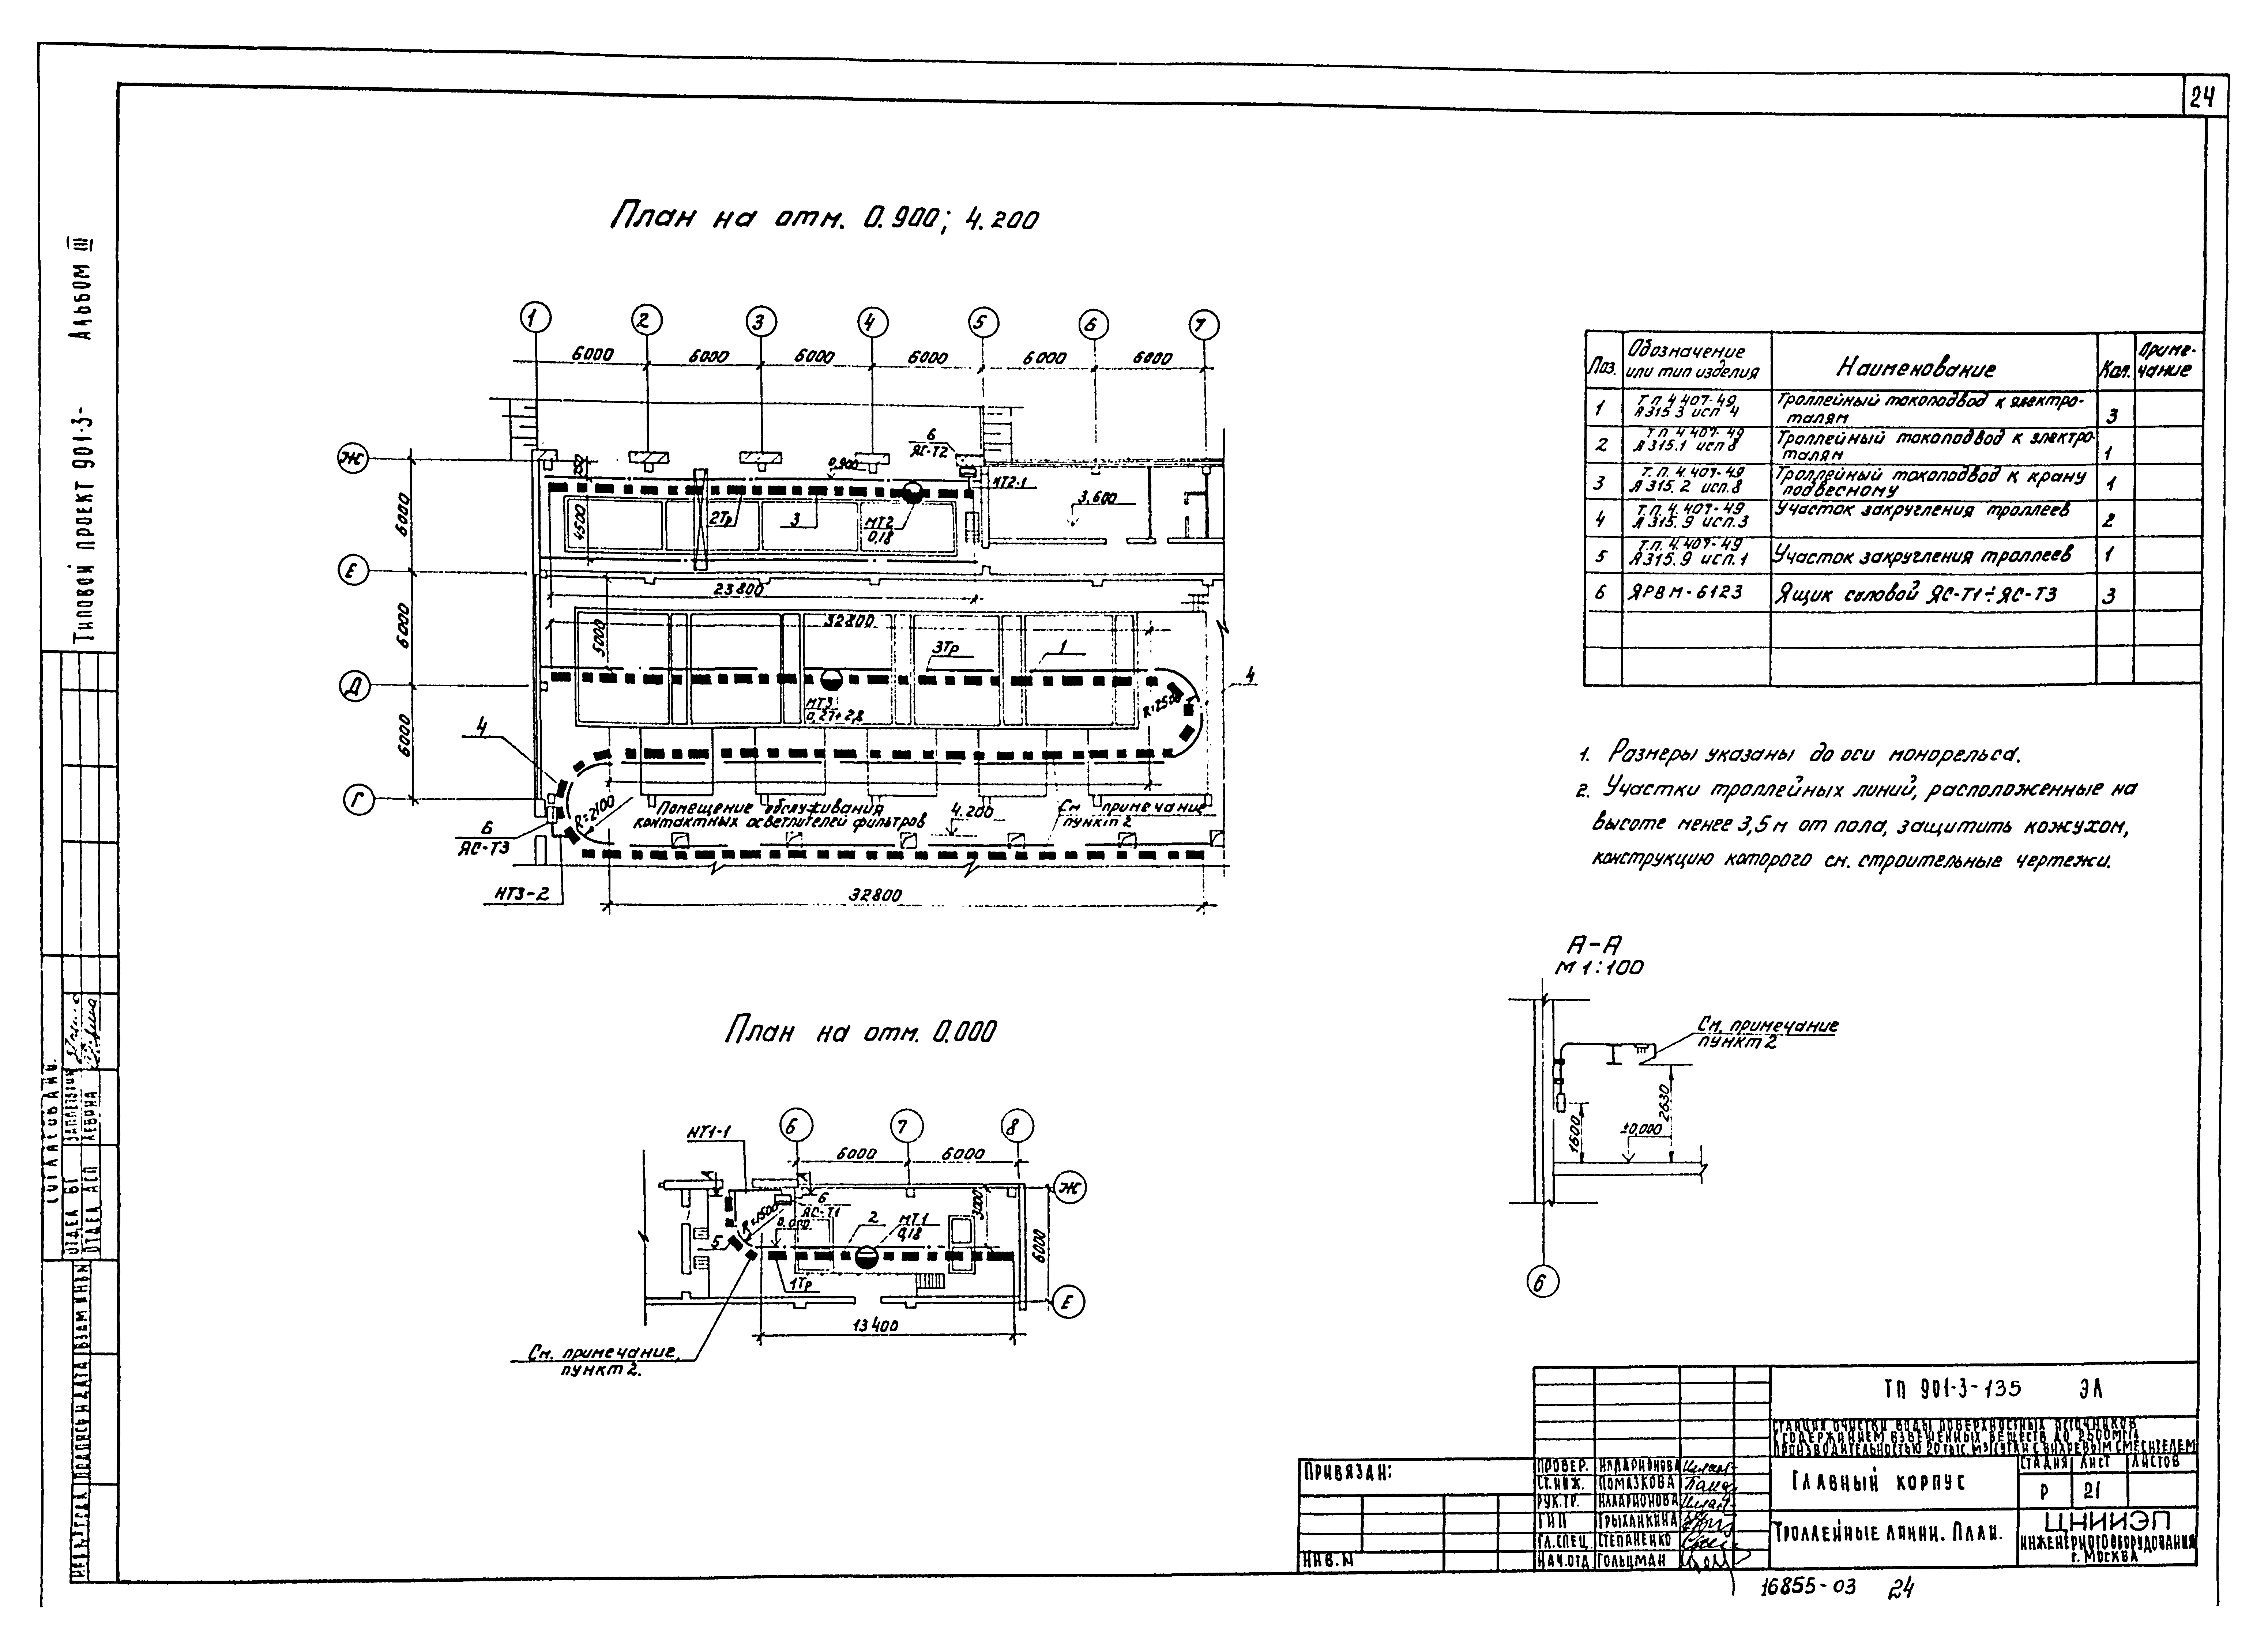 24
Типовой проект 901-3-
Альбом III
План на отм. 0.900; 4.200
1
2
3
4
5
6
7
6000
6000
6000
6000
6000
6000
Ж
Е
Д
Г
6000
6000
6000
4500
5000
0.900
6
ЯС-Т2
3.600
2Тр
3
МТ2
0,18
23800
32800
3Тр
1
4
МТ3
0,27+2,8
R=2500
4
R=2100
Помещение обслуживания
контактных осветлителей фильтров
4.200
См. примечание
пункт 2
6
ЯС-Т3
НТ3-2
32800
План на отм. 0.000
НТ1-1
6
7
8
6000
6000
Ж
Е
6000
3000
6
ЯС-Т1
R=1500
0.000
2
МТ1
0,18
5
1Тр
13400
См. примечание,
пункт 2.
Поз.
Обозначение
или тип изделия
Наименование
Кол.
Приме-
чание
1
Т.п. 4.407-49
А315.3 исп 4
Троллейный токоподвод к электро-
талям
3
2
Т.п. 4.407-49
А315.1 исп 8
Троллейный токоподвод к электро
талям
1
3
Т.п. 4.407-49
А315.2 исп.8
Троллейный токоподвод к крану
подвесному
1
4
Т.п. 4.407-49
А315.9 исп.3
Участок закругления троллеев
2
5
Т.п. 4.407-49
А315.9 исп.1
Участок закругления троллеев
1
6
ЯРВМ-6123
Ящик силовой ЯС-Т1÷ЯС-Т3
3
1. Размеры указаны до оси монорельса.
2. Участки троллейных линий, расположенные на
высоте менее 3,5м от пола, защитить кожухом,
конструкцию которого см. строительные чертежи.
А-А
М 1:100
См. примечание
пункт 2
1600
±0,000
2630
6
ТП 901-3-135 ЭЛ
Станция очистки воды поверхностных источников
с содержанием взвешенных веществ до 2500мг/л
производительностью 20 тыс. м³/сутки с вихревым смесителем
Главный корпус
Стадия
Лист
Листов
Р
21
Троллейные линии. План.
ЦНИИЭП
инженерного оборудования
г. Москва
Привязан:
Инв.N
Провер.
Илларионова
Ст.инж.
Помазкова
Рук.гр.
Илларионова
ГИП
Грыханкина
Гл.спец.
Степаненко
Нач.отд
Гольцман
16855-03
24
Согласовано.
Отдел ВГ
Отдел АСП
Левина
Инв.N подл
Подпись и дата
Взам инв N